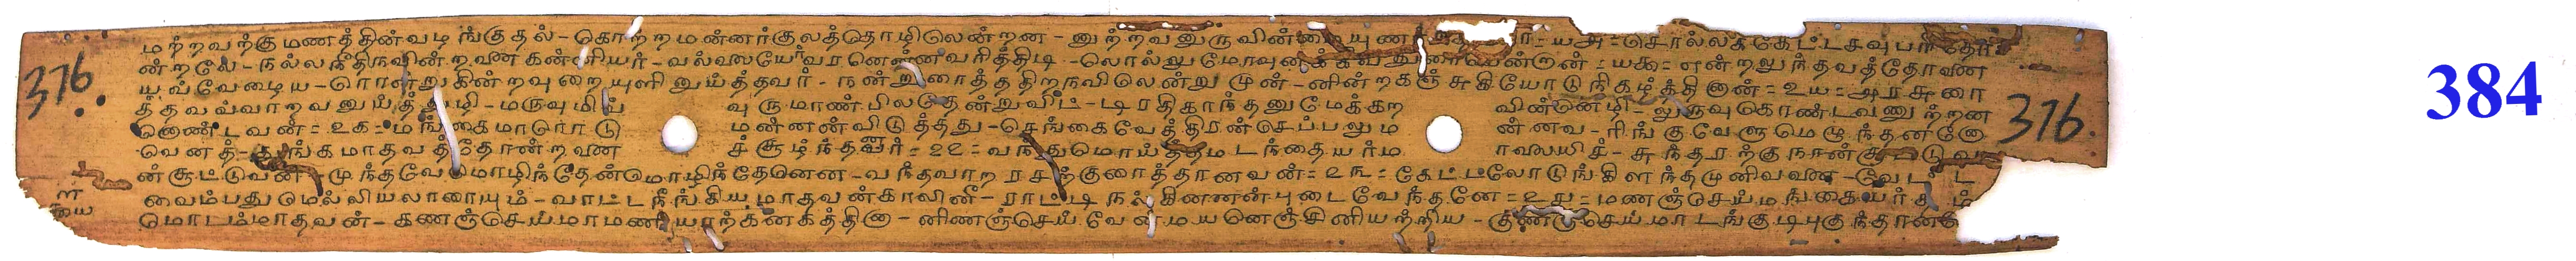 மற்றவற்குமணத்தின்வடிங்குதல்-கொற்றமன்னர்குலத்தொழிலென்றன-னுற்றவனுருவின் =யஅ=சொல்லக்கேட்டசவுபரி
ன்றலே-நல்லநீதிநவின்றவண்கன்னியர்-வல்லையேவரனெனவரித்திடி =யகூ=என்றலுந்தவத்தோவண
யவ்வேழைய-ரொன்றுகின்றவுறையுளினுய்த்தவர்-நன்றுரைத்ததிறநவிலென்று முன்-னின்றகஞ்சுகியோடுநிகழ்த்தினான்=உய=அரசுரை
த்தவவ்வாறவனுய்த்துழி-மருவுமிய் வுருமாண்பிலதென்றுவிட்-டிரதிகாந்தனுமேக்கற வின்னெழி-லுருவுகொண்டவணுற்றன
னெண்டவன்=உக=மங்கைமாரொடு மன்னன்விடுத்தது-செங்கைவேத்திரன்செப்பலும ன்னவ-ரிங்குவேளுமெழுந்தனனே
வெனத்-துங்கமாதவத்தோன்றவண ச்சூழ்ந்தனர்=உஉ=வந்துமொய்த்தமடந்தையர்ம ரவையிச்-சுந்தரற்குநான்சூட்டுவ
ன்சூட்டுவன்-முந்தவேமொழிந்தேன்மொழிந்தேனென-வந்தவாறரசற்குரைத்தானவன்=உங=கேட்டலோடுங்கிளந்தமுனிவவண-வேட்ட
வைம்பதுமெல்லியலாரையும்-வாட்டநீங்கியமாதவன்காலினீ-ராட்டிநல்கினனன்புடைவேந்தனே=உச=மணஞ்செய்மங்கையர்
மொடம்மாதவன்-கணஞ்செய்மாமணியாற்கனகத்தினா-னிணஞ்செய்வேன்மயனெஞ்சினியற்றிய-குணஞ்செய்மாடங்குடிபுகுந்தானரோ
376
376
384